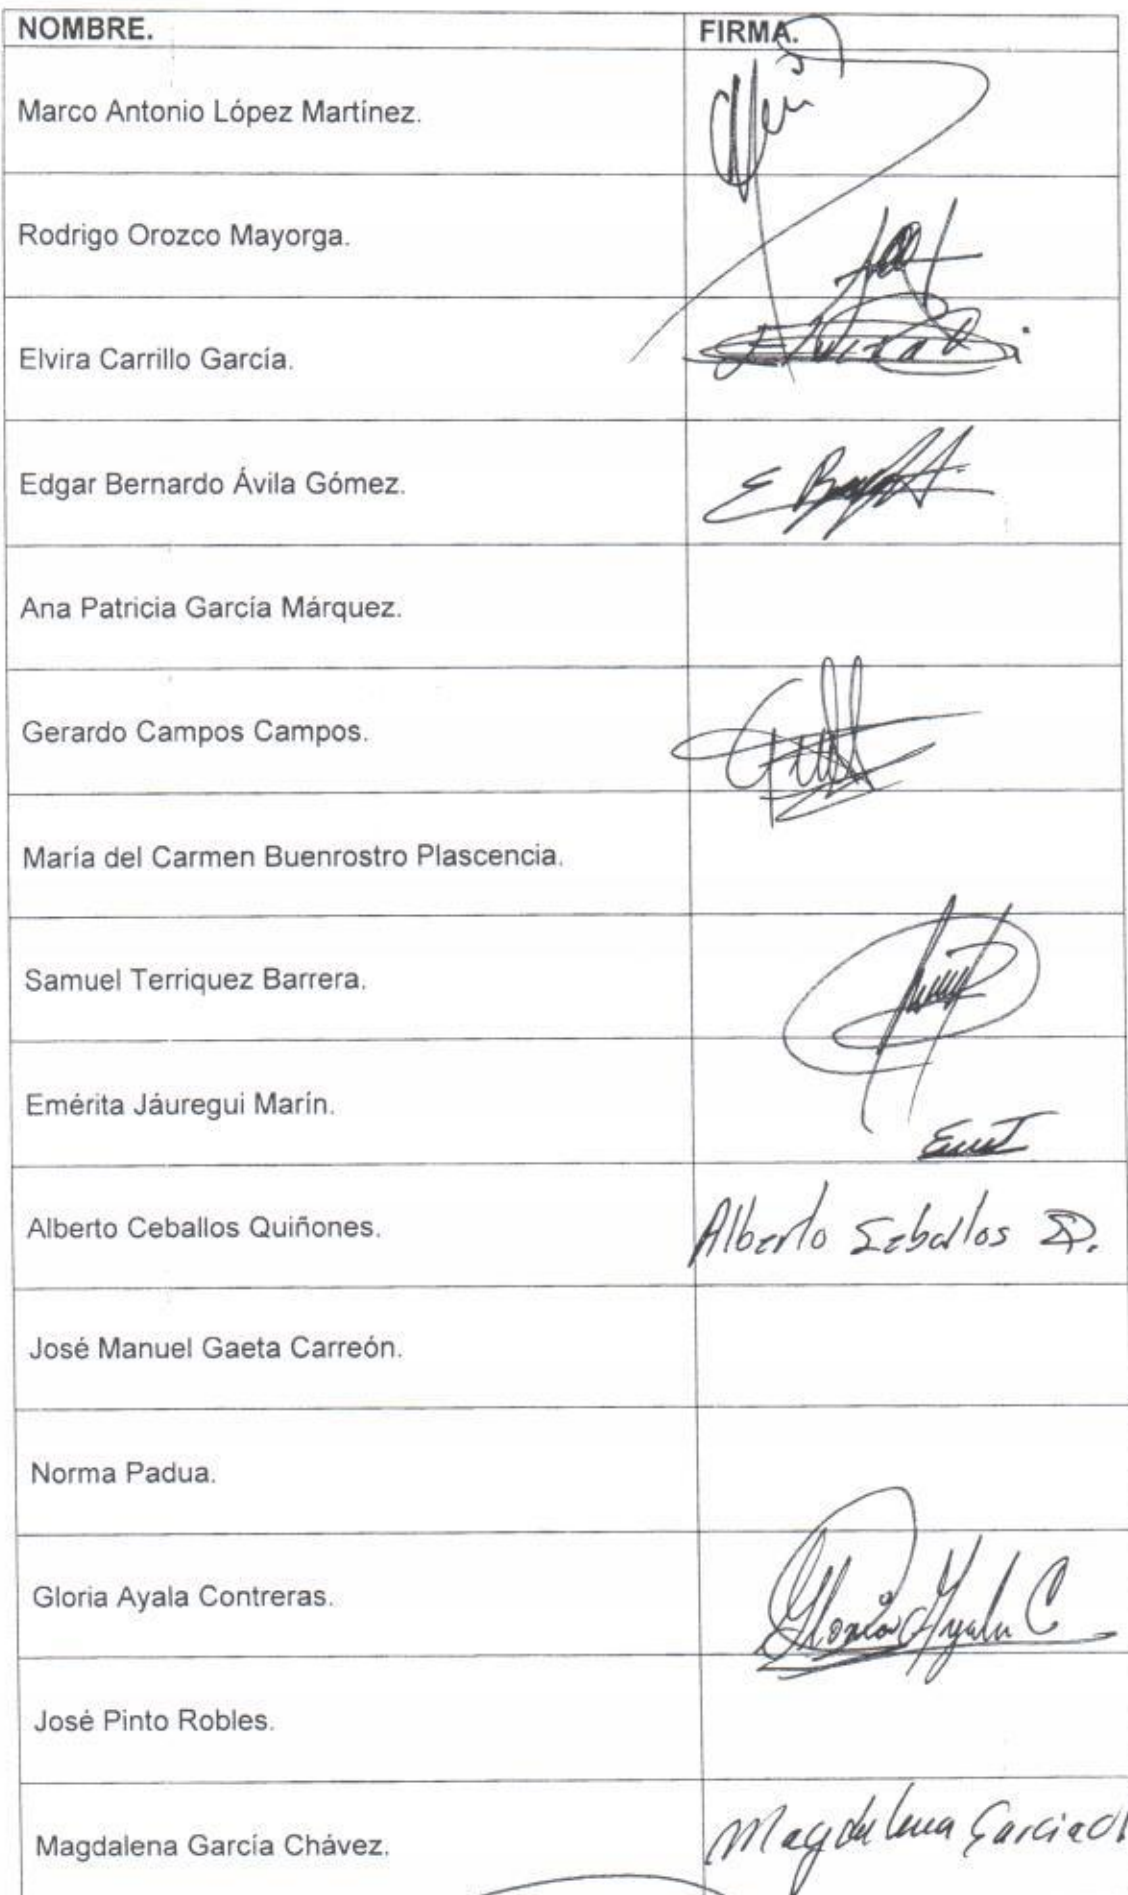 NOMBRE. FIRMA.
Marco Antonio López Martínez.
Rodrigo Orozco Mayorga.
Elvira Carrillo García.
Edgar Bernardo Ávila Gómez.
Ana Patricia García Márquez.
Gerardo Campos Campos.
María del Carmen Buenrostro Plascencia.
Samuel Terriquez Barrera.
Emérita Jáuregui Marín.
Alberto Ceballos Quiñones. Alberto Seballos
José Manuel Gaeta Carreón.
Norma Padua.
Gloria Ayala Contreras. Gloria Ayala C
José Pinto Robles.
Magdalena García Chávez. Magdalena Garcia